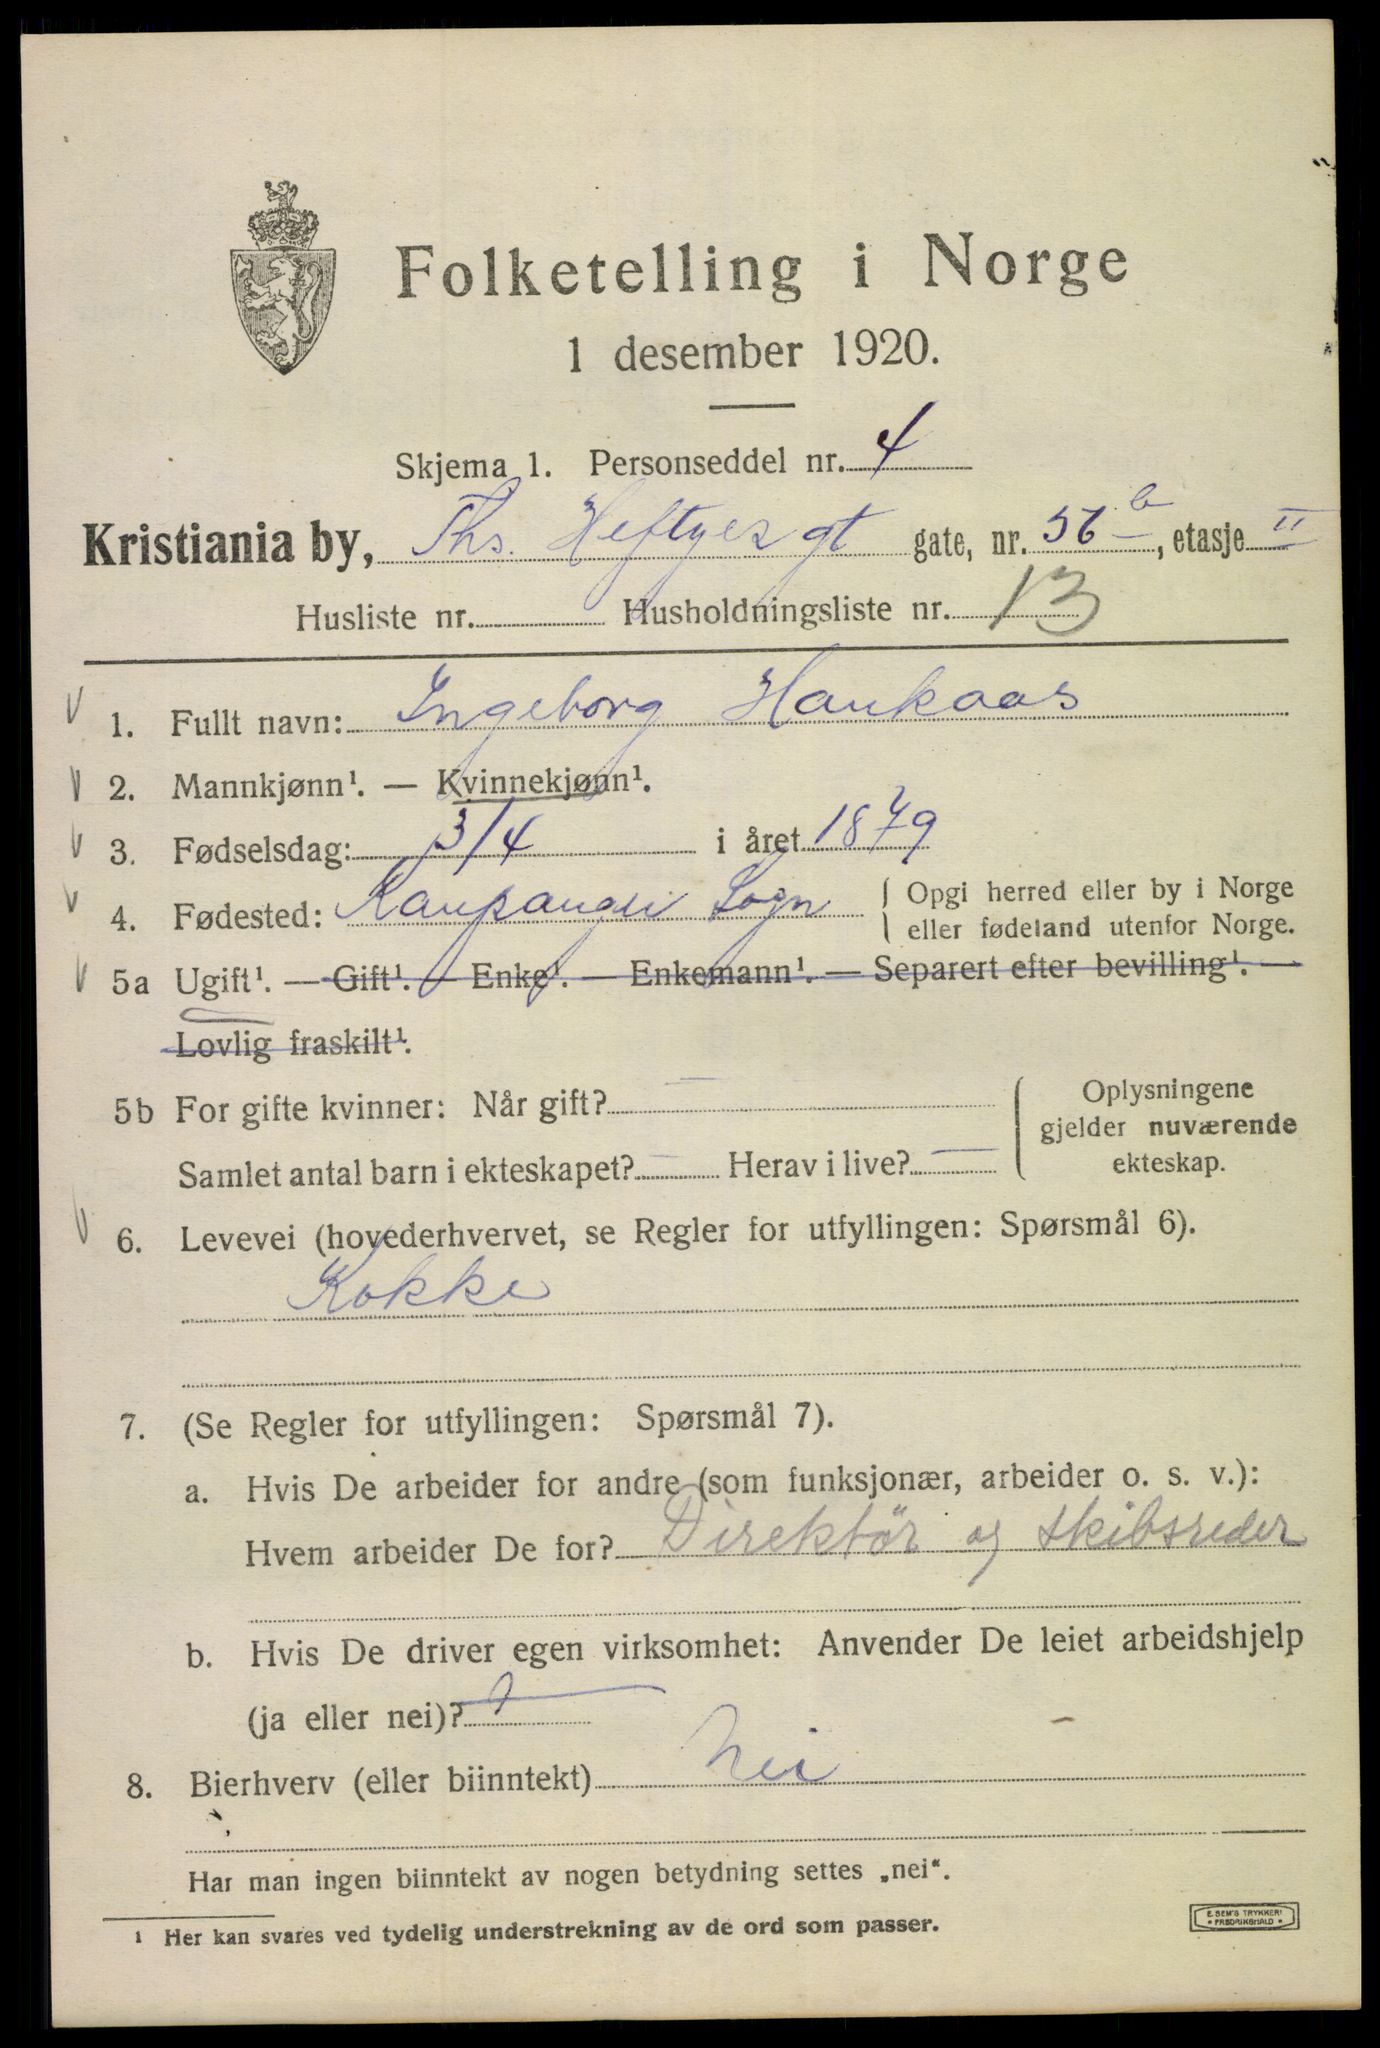 Folketelling i Norge
1 desember 1920.
Skjema 1. Personseddel nr. 4
Kristiania by, Ths. Heftyes gt gate, nr. 56 b, etasje II
Husliste nr. Husholdningsliste nr. 13
1. Fullt navn: Ingeborg Haukaas
2. Mannkjønn¹. — Kvinnekjønn¹.
3. Fødselsdag: 3/4 i året 1879
4. Fødested: Kaupanger Sogn { Opgi herred eller by i Norge
eller fødeland utenfor Norge.
5a Ugift¹. — Gift¹. — Enke¹. — Enkemann¹. — Separert efter bevilling¹. —
Lovlig fraskilt¹.
5b For gifte kvinner: Når gift? —
Samlet antal barn i ekteskapet? — Herav i live? —
Oplysningene
gjelder nuværende
ekteskap.
6. Levevei (hovederhvervet, se Regler for utfyllingen: Spørsmål 6).
Kokke
7. (Se Regler for utfyllingen: Spørsmål 7).
a. Hvis De arbeider for andre (som funksjonær, arbeider o. s. v.):
Hvem arbeider De for? Direktør og skibsreder
b. Hvis De driver egen virksomhet: Anvender De leiet arbeidshjelp
(ja eller nei)?
8. Bierhverv (eller biinntekt) Nei
Har man ingen biinntekt av nogen betydning settes „nei“.
¹ Her kan svares ved tydelig understrekning av de ord som passer.
E. SEM'S TRYKKERI
• FREDRIKSHALD •